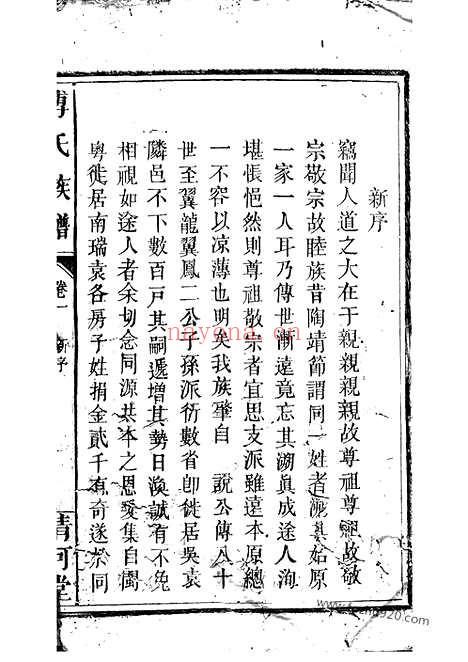 新序
竊聞人道之大在于親親親親故尊祖尊祖故敬
宗敬宗故睦族昔陶靖節謂同一姓者溯其始原
一家一人耳乃傳世漸遠竟忘其溯真成途人洵
堪悵悒然則尊祖敬宗者宜思支派雖遠本原總
一不容以凉薄也明矣我族肇自 說公傳八十
世至翼龍翼鳳二公子孫派衍數省卽徙居吳袁
隣邑不下數百戶其嗣遞增其勢日渙誠有不免
相視如途人者余切念同源共本之恩爰集自閩
粤徙居南瑞袁各房子姓捐金貳千有奇遂於同
氏族譜 卷一 新序 清河堂
nayona.cn